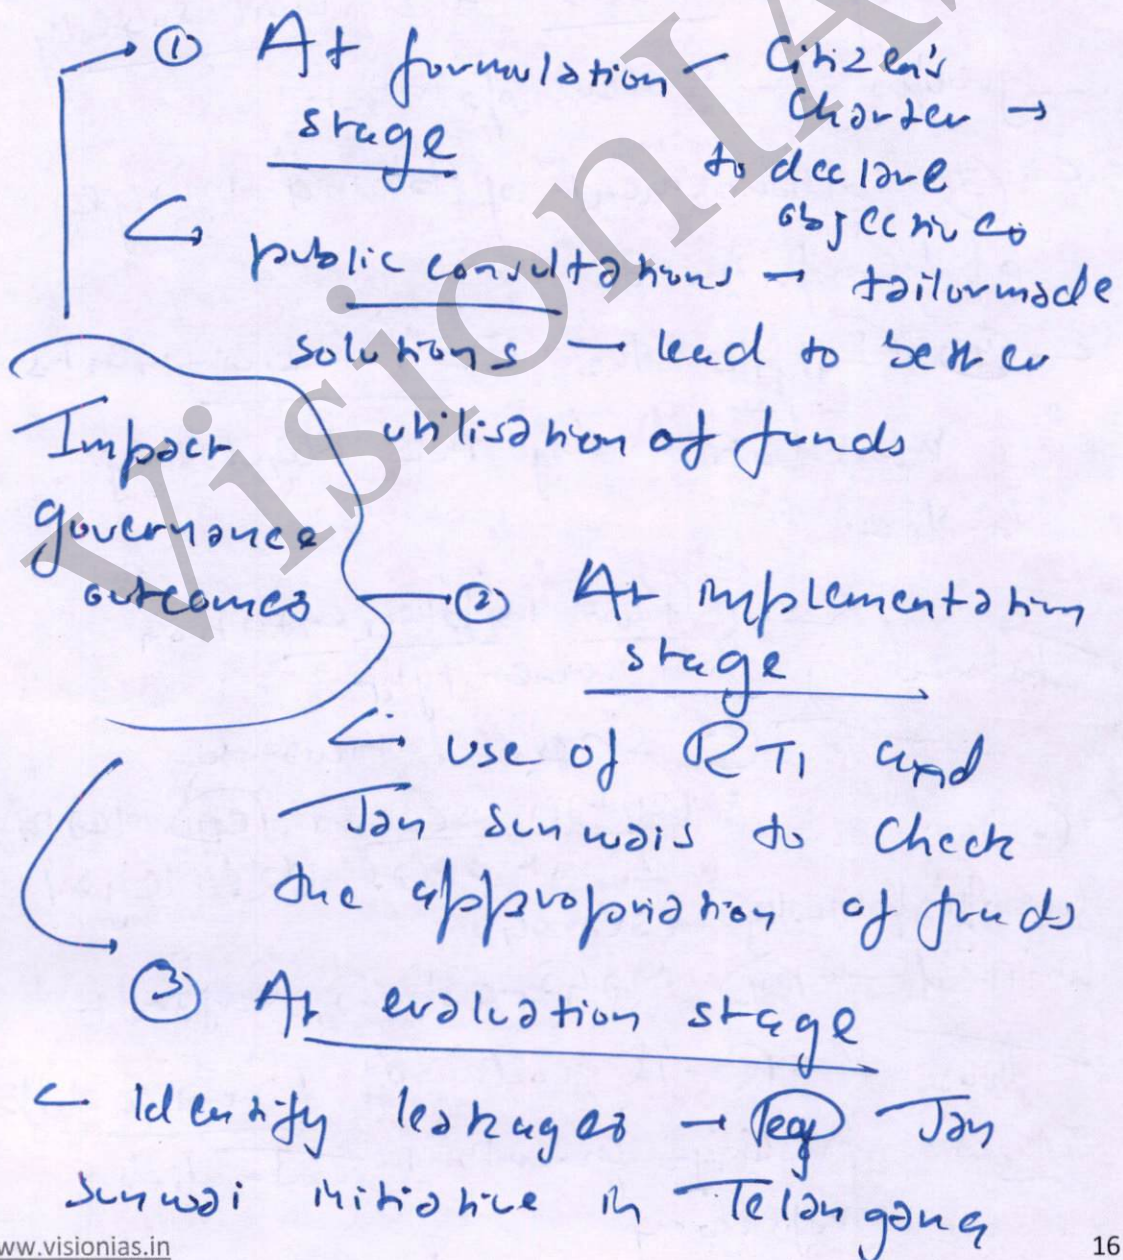 → ① At formulation – Citizen's
stage Charter →
to declare
objectives
↳ public consultations → tailormade
solutions → lead to better
utilisation of funds
Impact
governance
outcomes
② At implementation
stage
↳ use of RTI and
Jan sunwais to check
the appropriation of funds
③ At evaluation stage
↳ Identify leakages → eg Jan
sunwai initiative in Telangana
ww.visionias.in 16
VisionIA